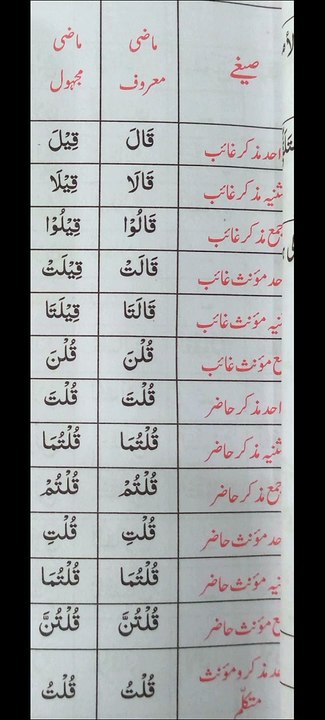 صیغے ماضی معروف ماضی مجہول
احد مذکر غائب قَالَ قِیْلَ
ثنیہ مذکر غائب قَالَا قِیْلَا
جمع مذکر غائب قَالُوْا قِیْلُوْا
حد مؤنث غائب قَالَتْ قِیْلَتْ
نیہ مؤنث غائب قَالَتَا قِیْلَتَا
ع مؤنث غائب قُلْنَ قُلْنَ
احد مذکر حاضر قُلْتَ قُلْتَ
ثنیہ مذکر حاضر قُلْتُمَا قُلْتُمَا
جمع مذکر حاضر قُلْتُمْ قُلْتُمْ
حد مؤنث حاضر قُلْتِ قُلْتِ
نیہ مؤنث حاضر قُلْتُمَا قُلْتُمَا
ع مؤنث حاضر قُلْتُنَّ قُلْتُنَّ
حد مذکر و مؤنث متکلم قُلْتُ قُلْتُ